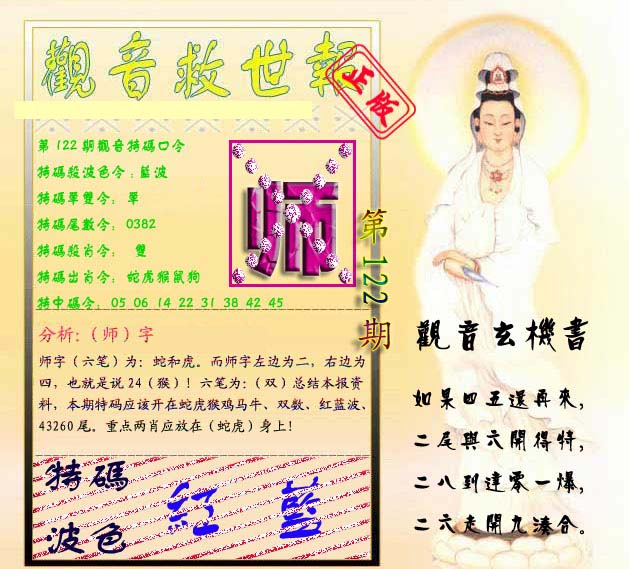 觀音救世報
正版
第122期觀音特碼口令
特碼殺波色令:藍波
特碼單雙令: 單
特碼尾數令: 0382
特碼殺肖令: 雙
特碼出肖令: 蛇虎猴鼠狗
特中碼令: 05 06 14 22 31 38 42 45
师
第122期
分析:（师）字
师字（六笔）为：蛇和虎。而师字左边为二，右边为
四，也就是说24（猴）！六笔为：（双）总结本报资
料，本期特码应该开在蛇虎猴鸡马牛、双数、红蓝波、
43260尾。重点两肖应放在（蛇虎）身上！
特碼
波色
紅 藍
觀音玄機書
如果四五還再來，
二尾與六開得特，
二八到達零一爆，
二六走開九湊合。